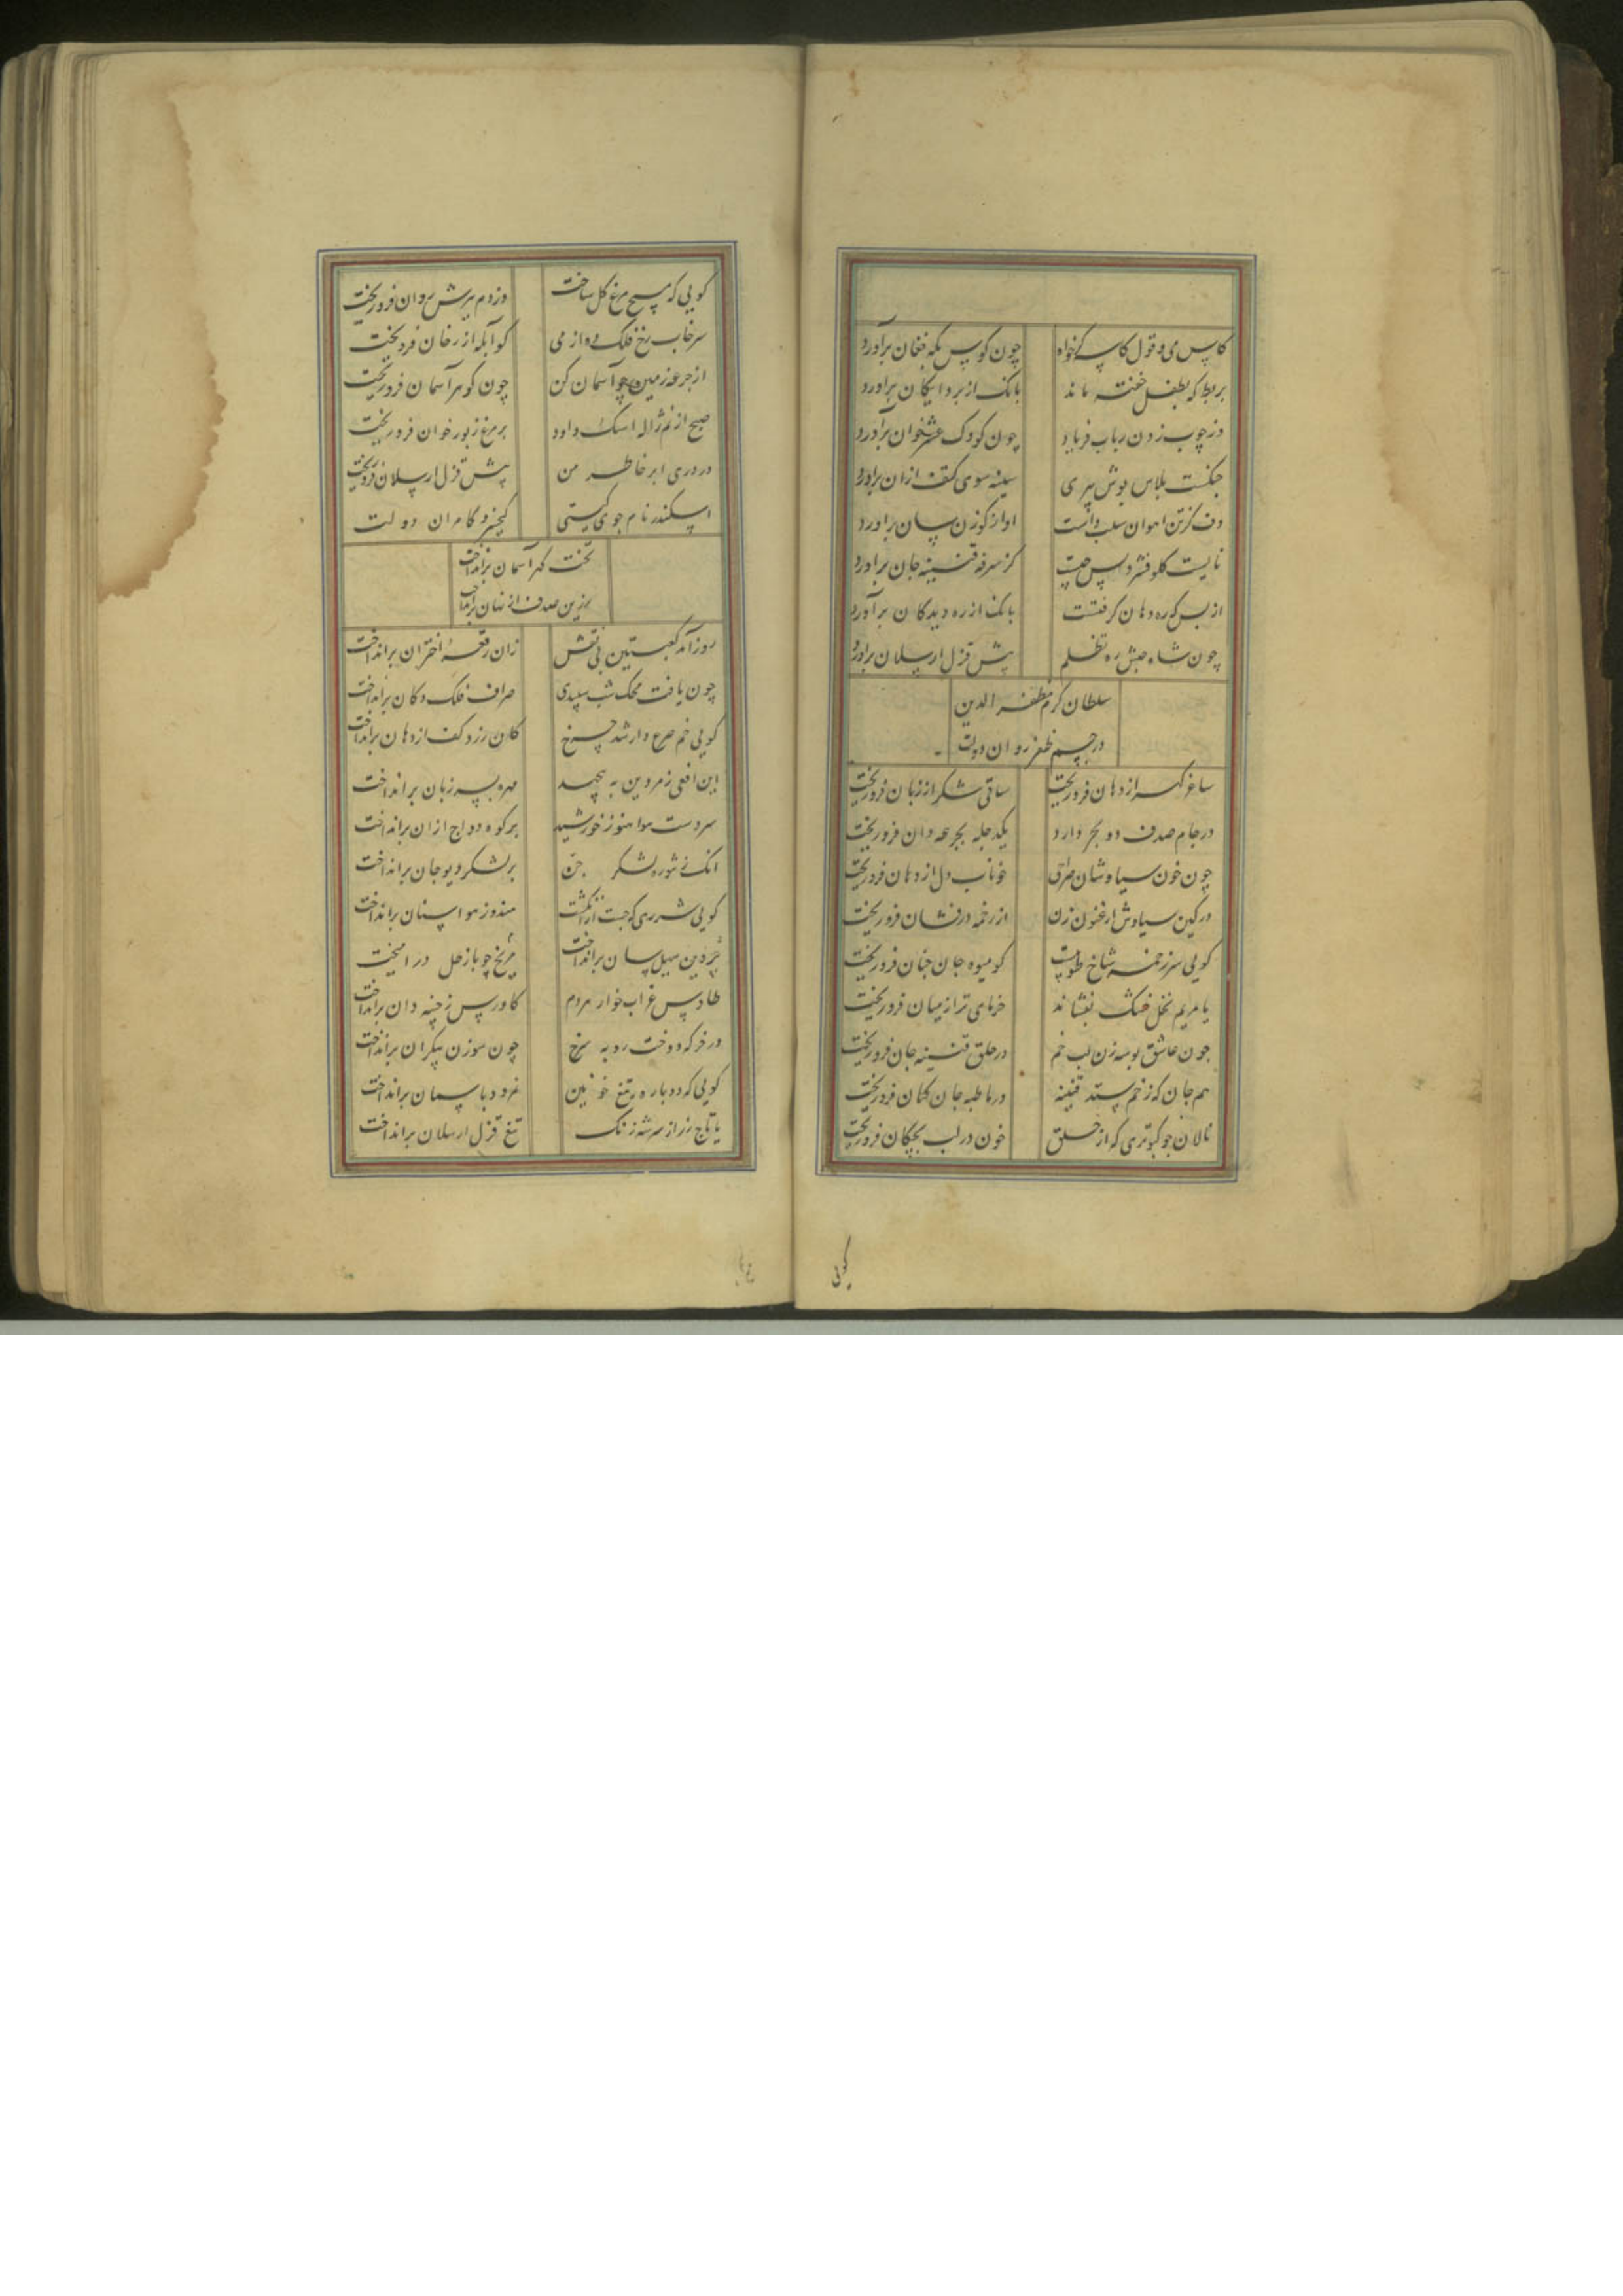 کاس می و قول کاسه گر خواه چون کوس پکه فغان برآورد
بربط که بطفل خفته ماند بانک از بر دایکان برآورد
وز چوب زدن رباب فریاد چون کودک عشرخوان برآورد
چنکست پلاس پوش پیری سینه سوی کتف ازان براورد
دف کز تن اهوان سلب داشت اواز کوزن سان براورد
نایست کلو فشرده پس چیست کز سرفه قنینه جان براورد
از بس که ره دهان کرفتست بانک از ره دیدکان برآورد
چون شاه حبش ره تظلم پیش قزل ارسلان براورد
سلطان کرم مظفر الدین
در جسم ظفر روان دولت
ساغر کهر از دهان فروریخت ساقی شکر از زبان فروریخت
در جام صدف دو بحر دارد یکدجله بجرعه دان فروریخت
چون خون سیاوشان صراحی خوناب دل از دهان فروریخت
در کین سیاوش ارغنون زن از زخمه درفشان فروریخت
کویی سر زخمه شاخ طوبیست کو میوه جان چنان فروریخت
یا مریم نخل خشک بفشاند خرمای تر از میان فروریخت
چون عاشق بوسه زن لب خم در حلق قنینه جان فروریخت
هم جان که ز خم ستد قنینه در باطیه جان کنان فروریخت
نالان چو کبوتری که از حلق خون در لب بچکان فروریخت
کویی
کویی که مسیح مرغ کل ساخت وز دم برش روان فروریخت
سرخاب رخ فلک ده از می کو آبله از رخان فروریخت
از جرعه زمین چو آسمان کن چون کوهر آسمان فروریخت
صبح از نم ژاله اشک داود بر مرغ زبور خوان فروریخت
در دری ابر خاطر من پیش قزل ارسلان فروریخت
اسکندر نام جوی کیتی کیخسرو کامران دولت
تخت کهر آسمان برانداخت
زین صدف از نهان برانداخت
روز آمد کعبتین بی نقش زان رقعه اختران برانداخت
چون یافت محک شب سپیدی صراف فلک دکان برانداخت
کویی خم صرع دار شد چرخ کان زرد کف از دهان برانداخت
این افعی زمردین به پیچید مهره بسر زبان برانداخت
سردست هوا هنوز خورشید بر کوه دواج ازان برانداخت
انک ز تنوره لشکر جن بر لشکر دیو جان برانداخت
کویی شرری که جست از انکشت هندوز هوا سنان برانداخت
پروین سهیل سان برانداخت مریخ چو با زحل درامیخت
طاوس غراب خوار هردم کاورس ز چینه دان برانداخت
در خرکه دوخت روبه سرخ چون سوزن بیکران برانداخت
کویی که دوباره تیغ خونین نمرود باسمان برانداخت
یا تاج زر از سر شه زنک تیغ قزل ارسلان برانداخت